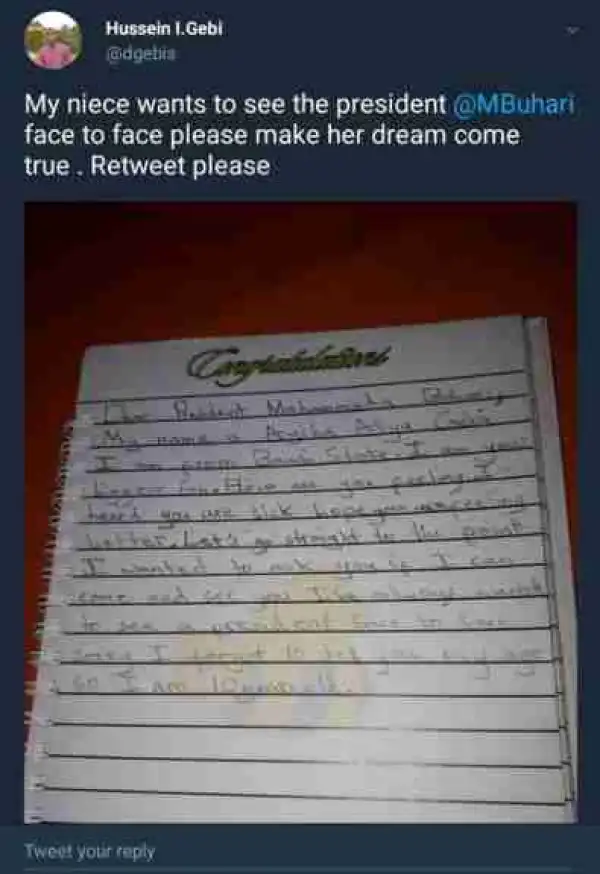 Hussein I.Gebi
@dgebia
My niece wants to see the president @MBuhari
face to face please make her dream come
true . Retweet please
Congratulations
Dear Mohammadu
My name is Aliya
I am from State. I am your
How are you feeling. I
heard you are sick hope you are feeling
better. Let's go straight to the point
I wanted to ask you if I can
come and see you I've always wanted
to see a president face to face
I forgot to tell you my age
so I am 10 years old.
Tweet your reply